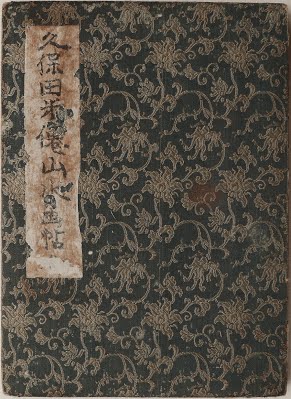 久保田米僊山水画帖